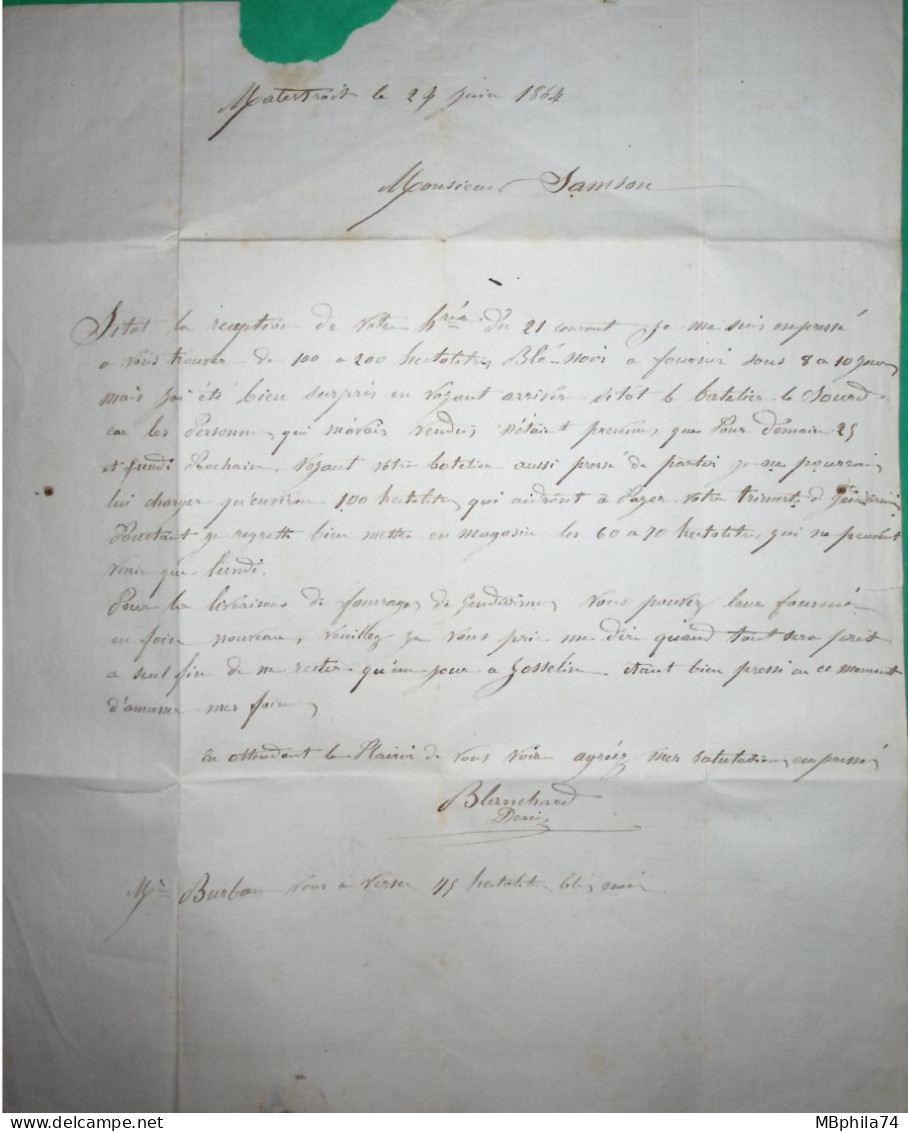 Malestroit le 24 juin 1864
Monsieur Samson
Sitot la réception de votre hrée du 21 courant je me suis empressé
a vous trouver de 100 a 200 hectolitres Blé-Noir a fournir sous 8 a 10 jours
mais j'ai été bien surpris en voyant arriver sitot le batelier le Sourd
car les Personnes qui m'avais vendus n'étaint prevenu, que Pour Demain 25
et Lundi Prochain, Voyant votre batelier aussi pressé de partir je ne pourrai
lui charger qu'environ 100 hectolitres qui aideront à Payer votre trimestre de
Pourtant je regrette bien mettre en magasin les 60 a 70 hectolitres qui ne peuvent
venir que Lundi.
Pour la livraisons de fourrages de Gendarmes Vous pouvez leur
en foin nouveau, veuillez je vous prie me dire quand tout sera prêt
a seul fin de ne rester qu'un jour a Josselin étant bien pressé en ce moment
d'amasser mes foins
En attendant le Plaisir de vous voir agréez mes salutations empressé
Blanchard
Denis
Mr Burban vous à verser 75 hectolit blé noir
MBphila74